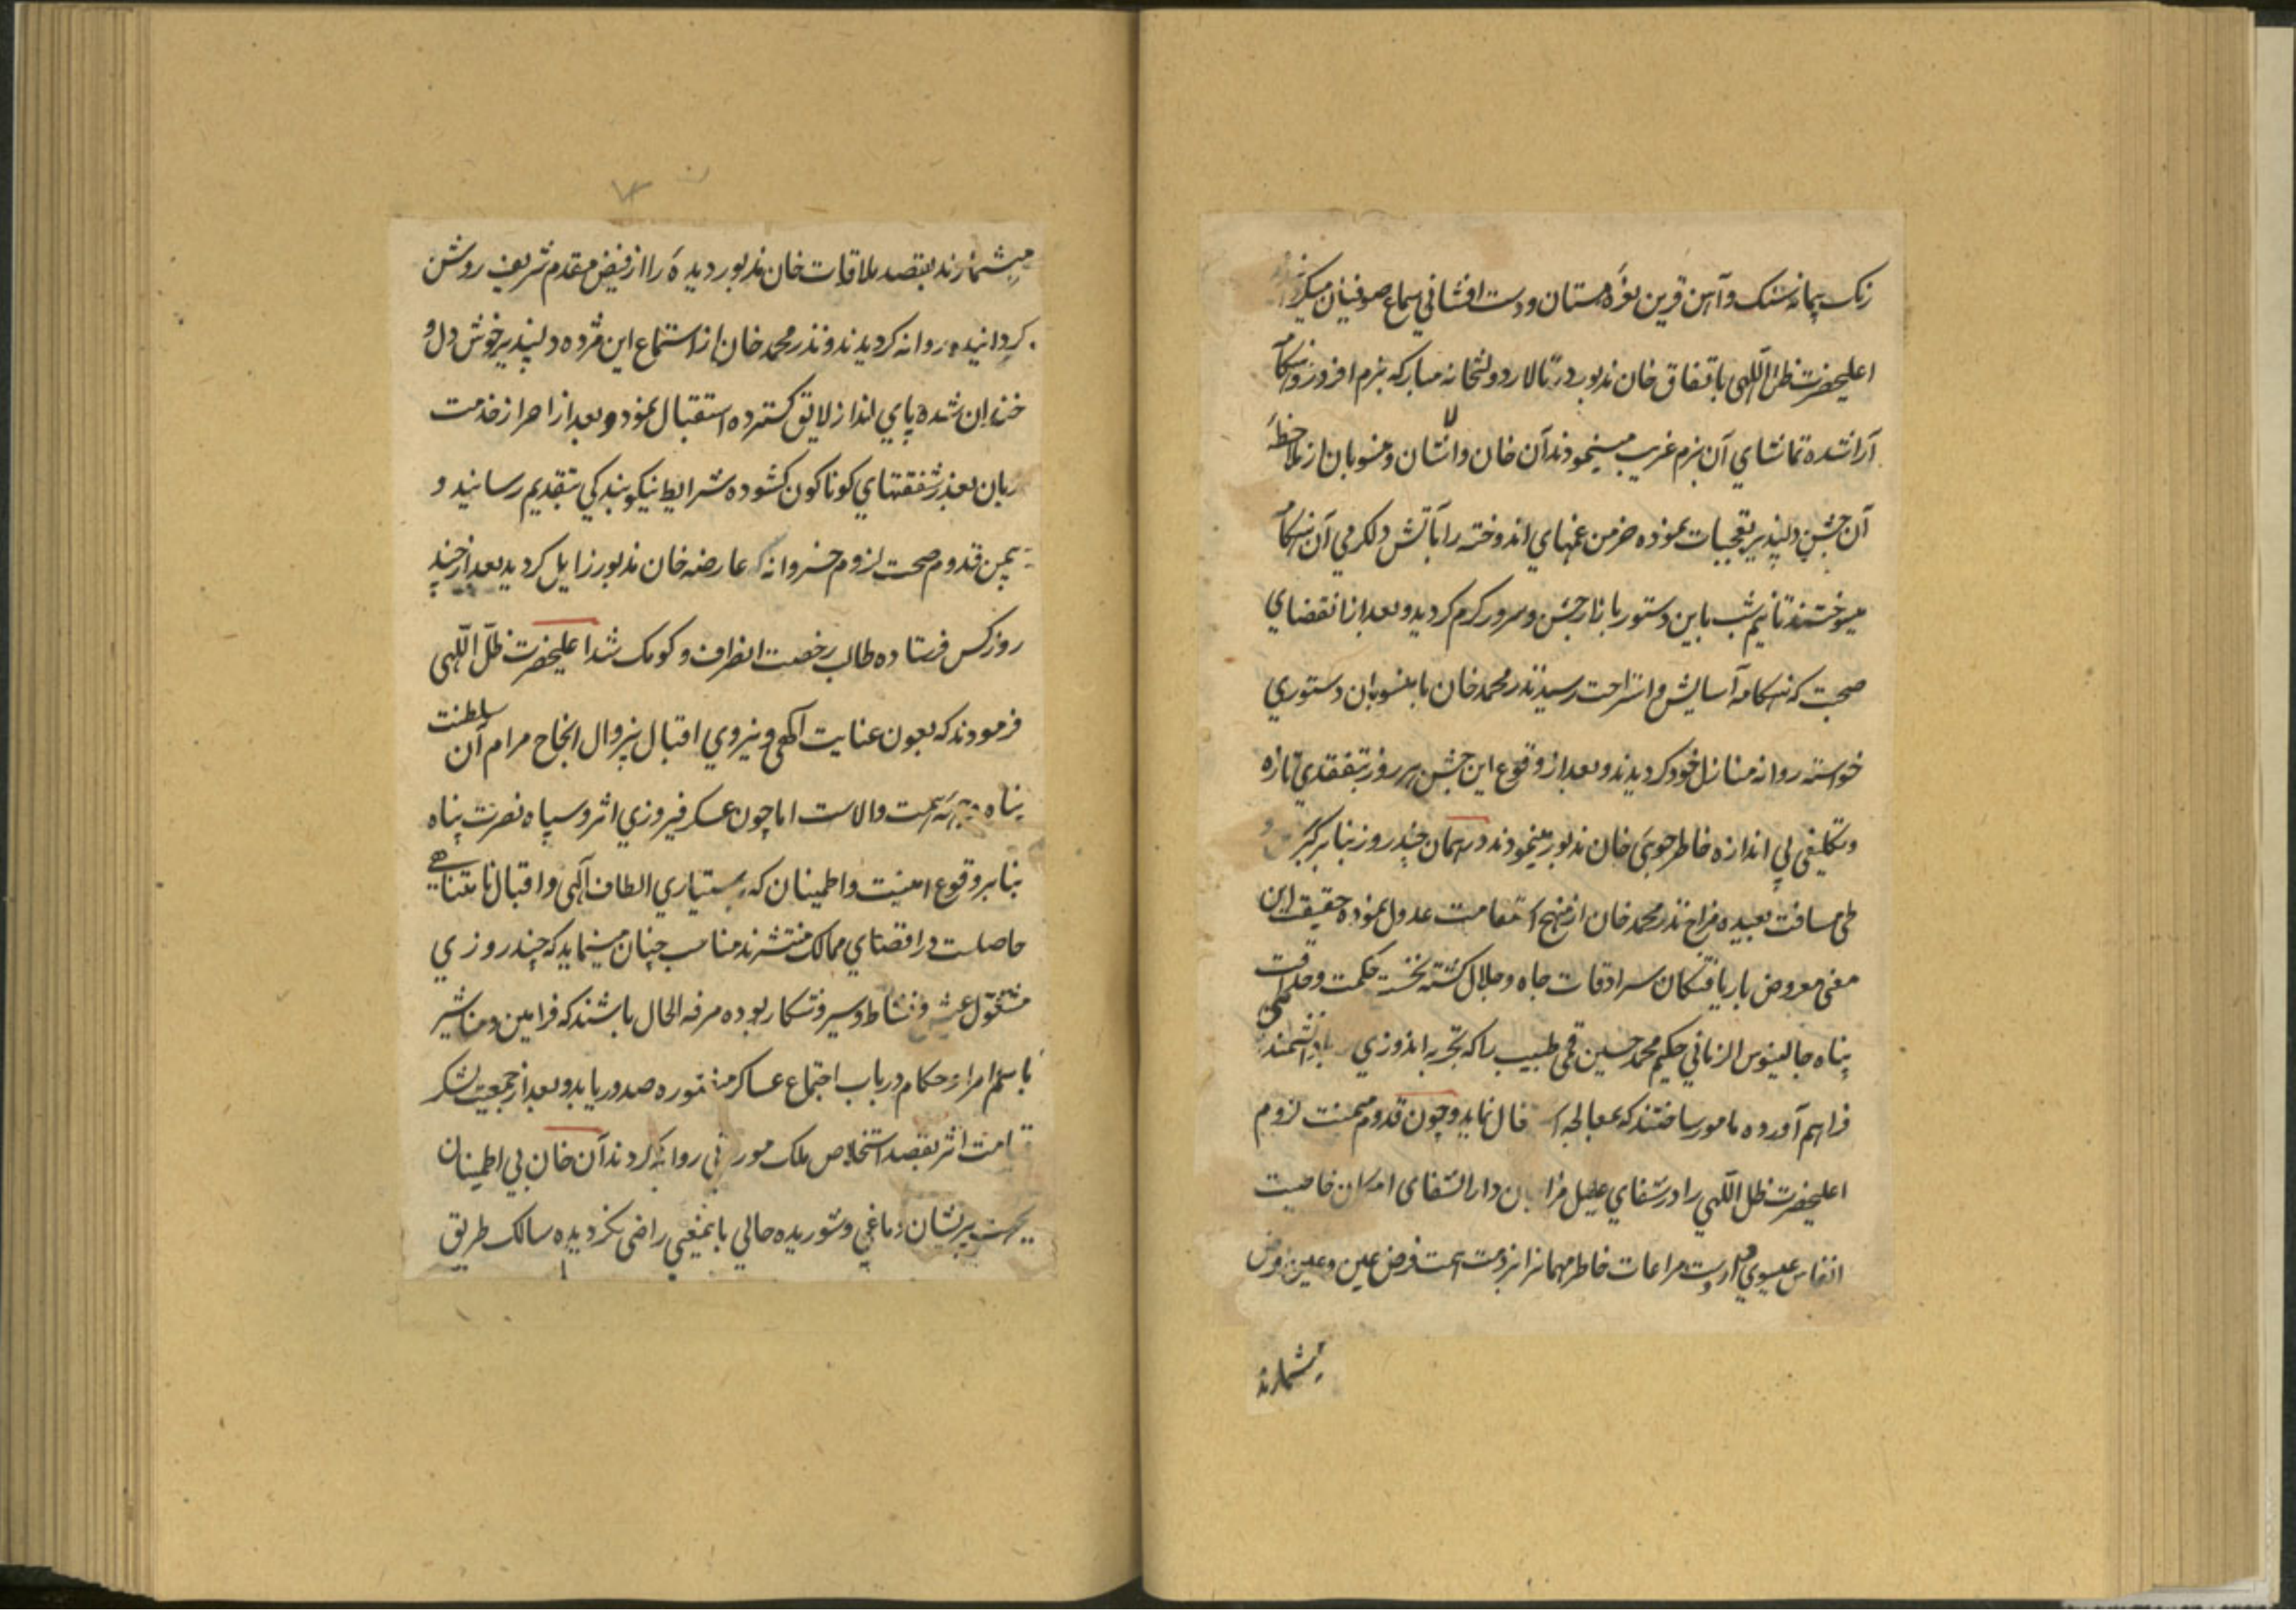 رنک پیمانه سنک و آهن قرین نعرهٔ مستان و دست افشانی سماع صوفیان میکرد
اعلیحضرت ظل اللهی باتفاق خان مذبور در تالار دولتخانه مبارکه بزم افروز و هنکامه
آرا شده تماشای آن بزم غریب مینمودند آن خان والاشان و منسوبان از ملاحظهٔ
آن جشن دلپذیر تعجبات نموده خرمن غمهای اندوخته را بآتش دلکرمی آن هنکامه
میسوختند تا نیم شب باین دستور بازار جشن و سرور کرم کردید و بعد از انقضای
صحبت که هنکامه آسایش و استراحت رسید نذر محمد خان با منسوبان دستوری
خواسته روانه منازل خود کردیدند و بعد از وقوع این جشن هر روز بتفقدی تازه
و تکلیفی بی اندازه خاطر جویی خان مذبور مینمودند در همان چند روز بنا بر کبر
طی مسافت بعیده مزاج نذر محمد خان از منهج استقامت عدول نموده حقیقت این
معنی معروض باریافتکان سرادقات جاه و جلال کشته نخست حکمت و حذاقت
پناه جالینوس الزمانی حکیم محمد حسین قمی طبیب را که تجربه اندوزی با دانشمندی
فراهم آورده مامور ساختند که بمعالجه فال نماید و چون قدوم میمنت لزوم
اعلیحضرت ظل اللهی را در شفای علیل مزاجان دار الشفای امکان خاصیت
انفاس عیسوی است و مراعات خاطر مهمانرا بر ذمت همت فرض عین و عین فرض
میشمارند
میشمارند بقصد ملاقات خان مذبور دیده را از فیض مقدم شریف روشن
کردانیده روانه کردیدند و نذر محمد خان از استماع این مژده دلپذیر خوش دل و
خندان شده پای انداز لایق کسترده استقبال نمود و بعد از احراز خدمت
زبان بعذر شفقتهای کوناکون کشوده شرایط نیکو بندکی بتقدیم رسانید و
بیمن قدوم صحت لزوم خسروانه عارضه خان مذبور زایل کردید بعد از چند
روز کس فرستاده طالب رخصت انصراف و کومک شد اعلیحضرت ظل اللهی
فرمودند که بعون عنایت الهی و نیروی اقبال بیزوال انجاح مرام آن سلطنت
پناه همت والاست اما چون عسکر فیروزی اثر و سپاه نصرت پناه
بنا بر وقوع امنیت و اطمینان که بدستیاری الطاف الهی و اقبال نامتناهی
حاصلست در اقصای ممالک منتشرند مناسب چنان مینماید که چند روزی
مشغول عیش و نشاط و سیر و شکار بوده مرفه الحال باشند که فرامین و مناشیر
باسم امرا و حکام در باب اجتماع عساکر منصوره صدور یابد و بعد از جمعیت لشکر
قیامت اثر بقصد استخلاص ملک موروثی روانه کردند آن خان بی اطمینان
بجهت پریشان دماغی و شوریده حالی باینمعنی راضی نکردیده سالک طریق